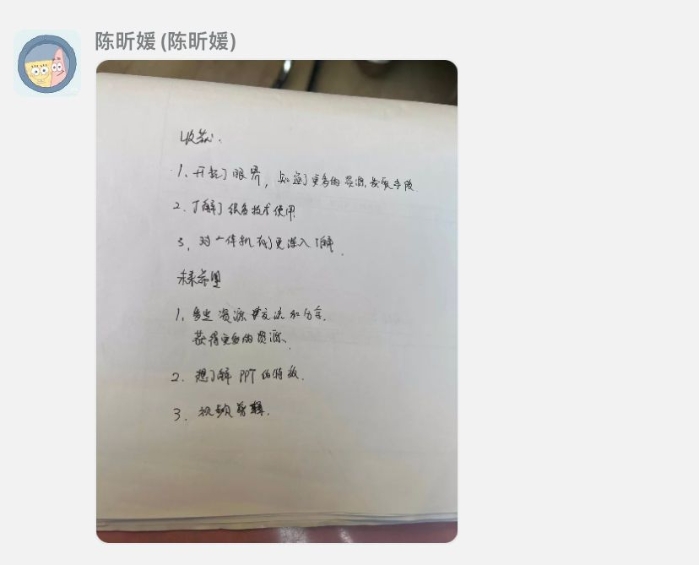 陈昕媛 (陈昕媛)
收获:
1. 开拓了眼界, 知道了更多的资源, 获取手段
2. 了解了很多技术使用
3. 对一体机有了更深入了解.
未来希望
1. 多些资源 交流和分享.
获得更多的资源.
2. 想了解 PPT 的
3. 视频剪辑.